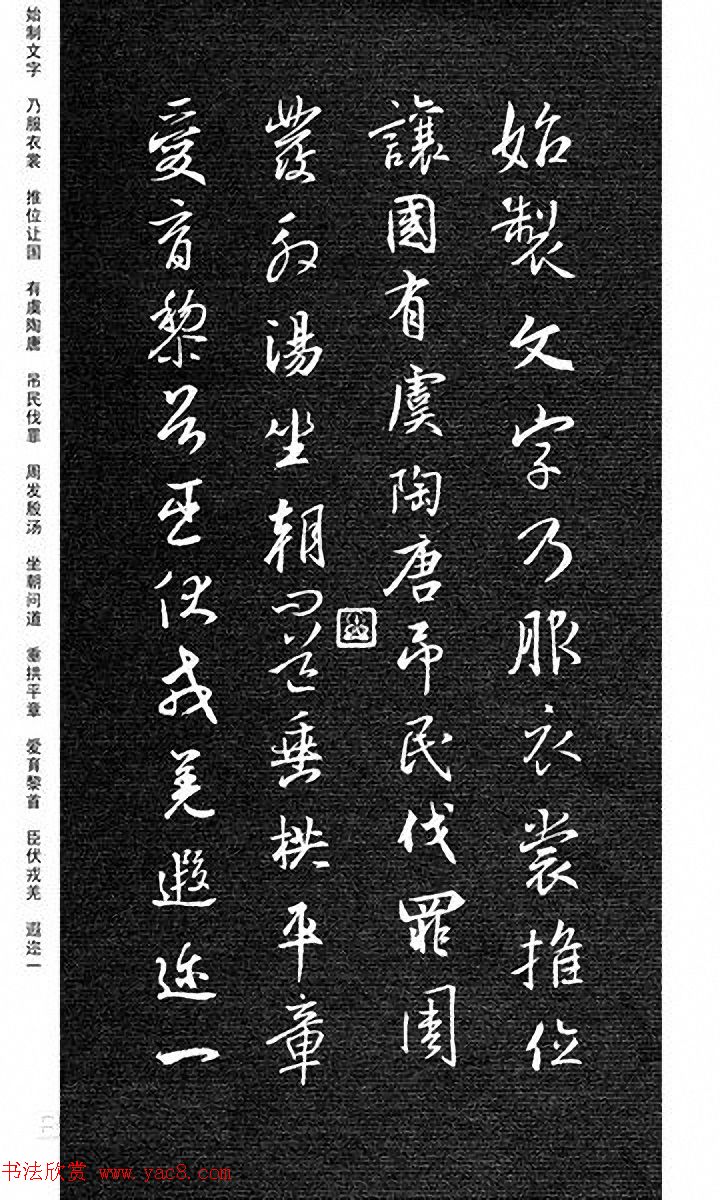 始製文字乃服衣裳推位
讓國有虞陶唐弔民伐罪周
發殷湯坐朝問道垂拱平章
愛育黎首臣伏戎羌遐迩一
始制文字 乃服衣裳 推位让国 有虞陶唐 吊民伐罪 周发殷汤 坐朝问道 垂拱平章 爱育黎首 臣伏戎羌 遐迩一
书法欣赏 www.yac8.com